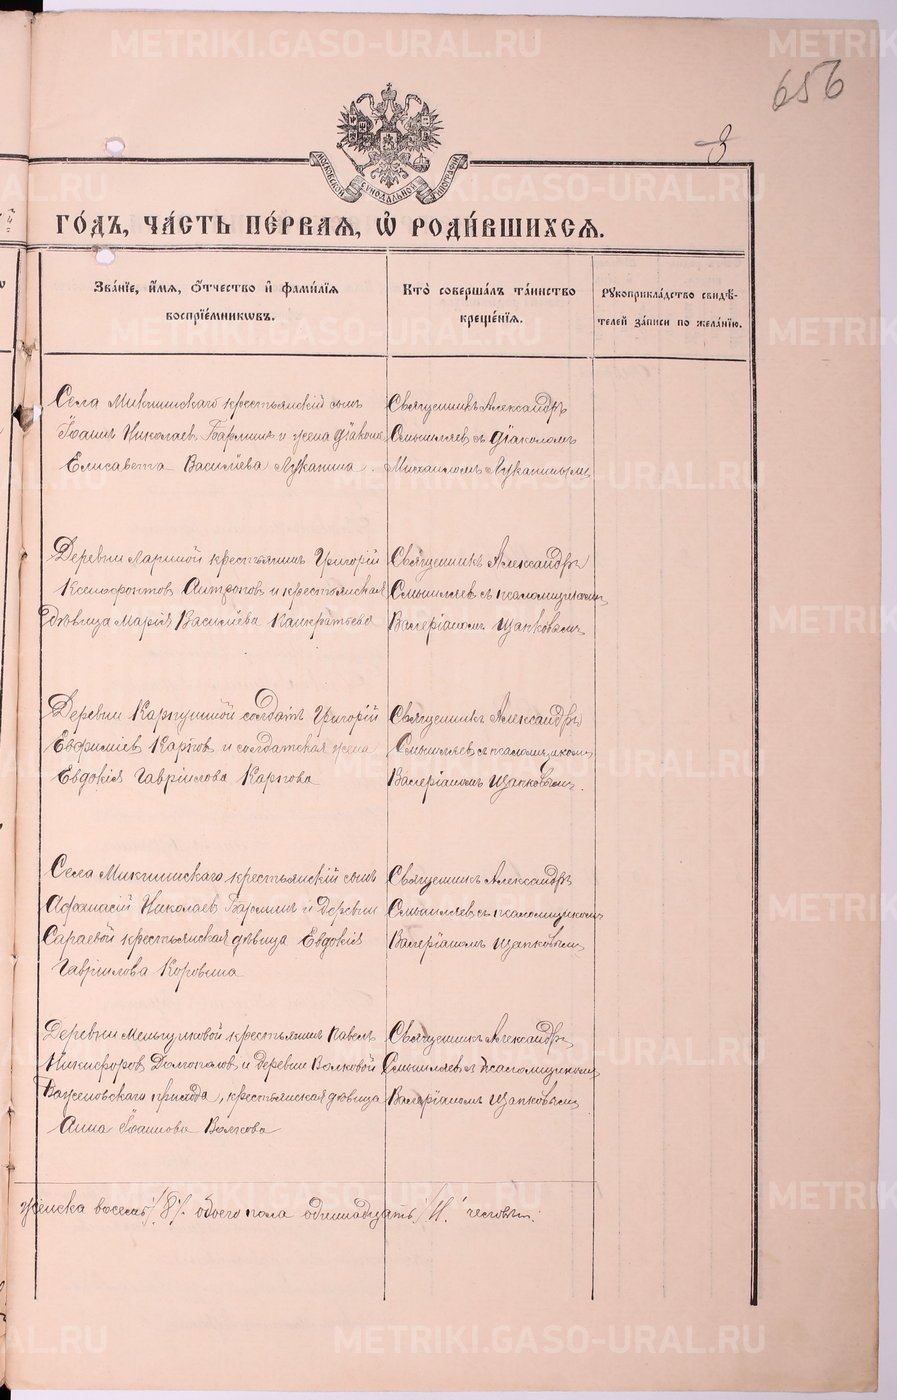 656
8
МОСКОВСКОЙ СУНОДАЛЬНОЙ ТИПОГРАФІИ
ГО́ДЪ, ЧА́СТЬ ПЕ́РВАѦ, Ѡ҆ РОДИ́ВШИХСѦ.
Зва́нїе, и҆́мѧ, ѻ҆́тчество и҆ фами́лїѧ
воспрїе́мникѡвъ.
Кто̀ соверша́лъ та́инство
креще́нїѧ.
Рꙋкоприкла́дство свидѣ́-
телей за́писи по жела́нїю.
Села Микшинскаго крестьянскій сынъ
Іоаннъ Николаев Бармин и жена діакона
Елисавета Василіева Луканина.
Священникъ Александръ
Смышляев съ діакономъ
Михаиломъ Луканинымъ
Деревни крестьянинъ Григорій
Ксенофонтов Антропов и крестьянская
дѣвица Марія Василіева Панкратьева
Священникъ Александръ
Смышляев съ псаломщикомъ
Валеріаномъ Щапковымъ
Деревни Карпушиной солдатъ Григорій
Евфиміев Карпов и солдатская жена
Евдокія Гавріилова Карпова
Священникъ Александръ
Смышляев съ псаломщикомъ
Валеріаномъ Щапковымъ.
Села Микшинскаго крестьянскій сынъ
Афанасій Николаев Бармин и деревни
Сараевой крестьянская дѣвица Евдокія
Гавріилова Коровина
Священникъ Александръ
Смышляев съ псаломщикомъ
Валеріаномъ Щапковымъ
Деревни Мельниковой крестьянинъ Павелъ
Никифоров Долгополов и деревни Волковой
Баженовскаго прихода, крестьянская дѣвица
Анна Іоаннова Волкова
Священникъ Александръ
Смышляев съ псаломщикомъ
Валеріаномъ Щапковымъ
женска восемь /8/. обоего пола одиннадцать /11/ человѣкъ.
METRIKI.GASO-URAL.RU